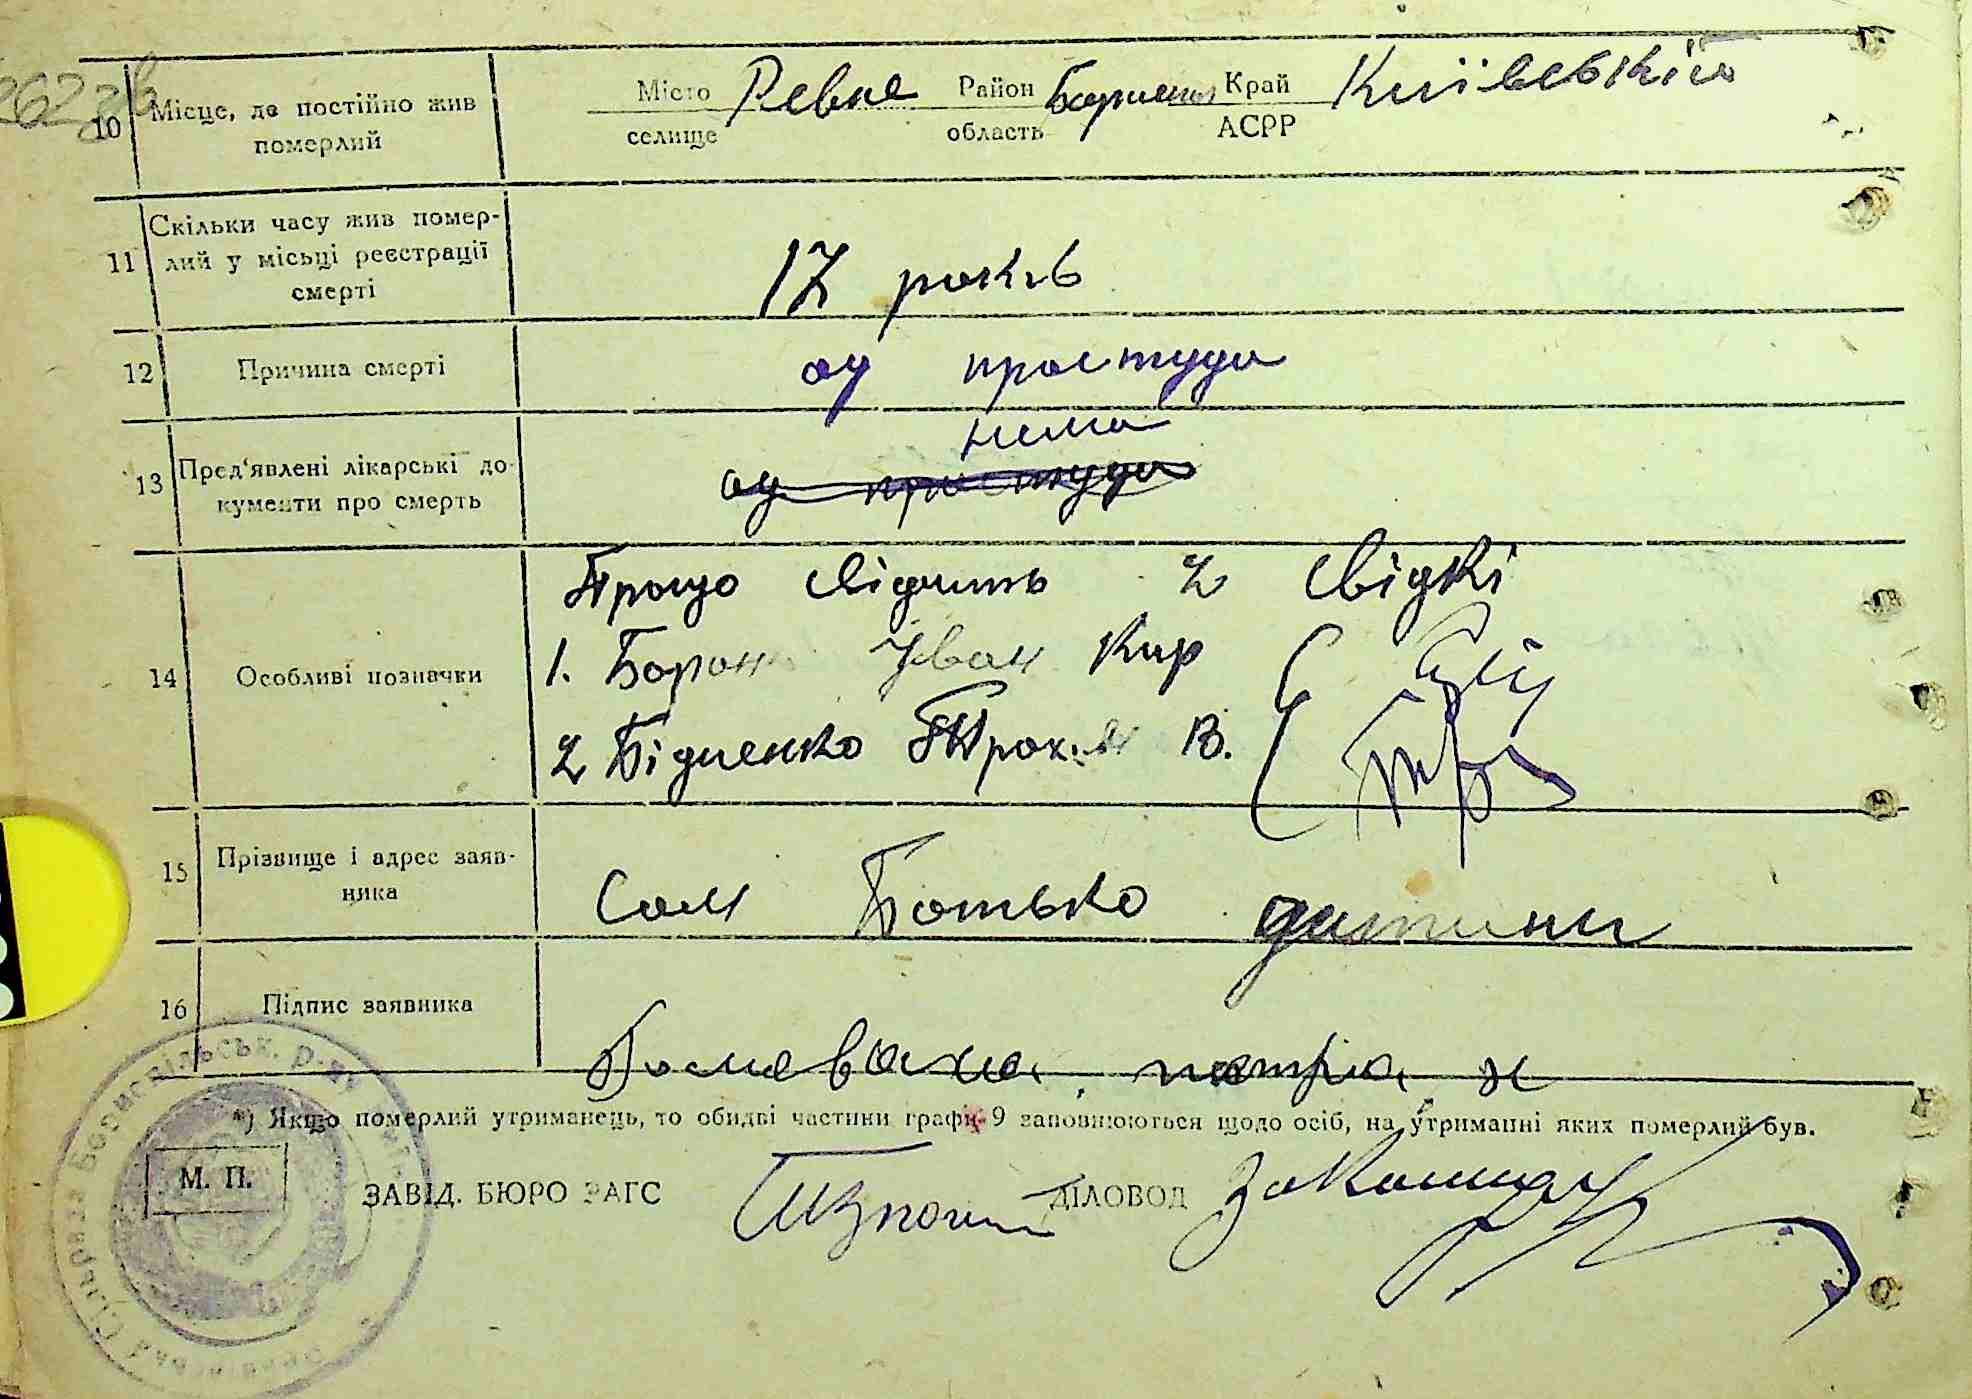 10 Місце, де постійно жив померлий
Місто селище Ревне Район область Бориспол Край АСРР Київській
11 Скільки часу жив помер-
лий у місьці реєстрації
смерті
17 років
12 Причина смерті
од простуди
13 Пред'явлені лікарські до
кументи про смерть
нема
од простуди
14 Особливі позначки
Прощо свідчить 2 свідкі
1. Іван Кир
2 Бідненко Трохим В.
15 Прізвище і адрес заяв-
ника
Сам Батько дитини
16 Підпис заявника
*) Якщо померлий утриманець, то обидві частини графи 9 заповнюються щодо осіб, на утриманні яких померлий був.
М. П.
ЗАВІД. БЮРО ЗАГС
ДІЛОВОД
Бориспільськ. р-ну